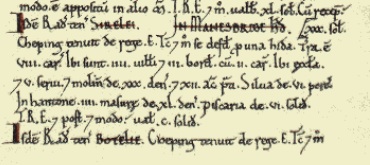 modo. ē apposita in alio ꝏ. T.R.E. 7 m̄. ualb̄. xl. sol. Cū recep.
Idē Rad. ten̄ SIRELEI. IN MANESBRIGE HD. xxx. sol.
Cheping tenuit de rege. E. Tc̄ 7 m̄ se defd̄. p una hida. Tra. ē
car. Ibi sunt. iiii. uilli 7 bord. cū. ii. car. Ibi eccla.
7 v. serui. 7 molin̄ de. xxx. den̄. 7 xii. ac̄ p̄ti. Silua de. vi. porc̄.
In hantone. iiii. masuræ de. xl. den̄. piscaria de. vi. solid̄.
T.R.E. 7 post. 7 modo. ual. c. solid̄.
Isdē Rad. ten̄ BOTELIE. Cheping tenuit de rege. E. Tc̄ 7 m̄